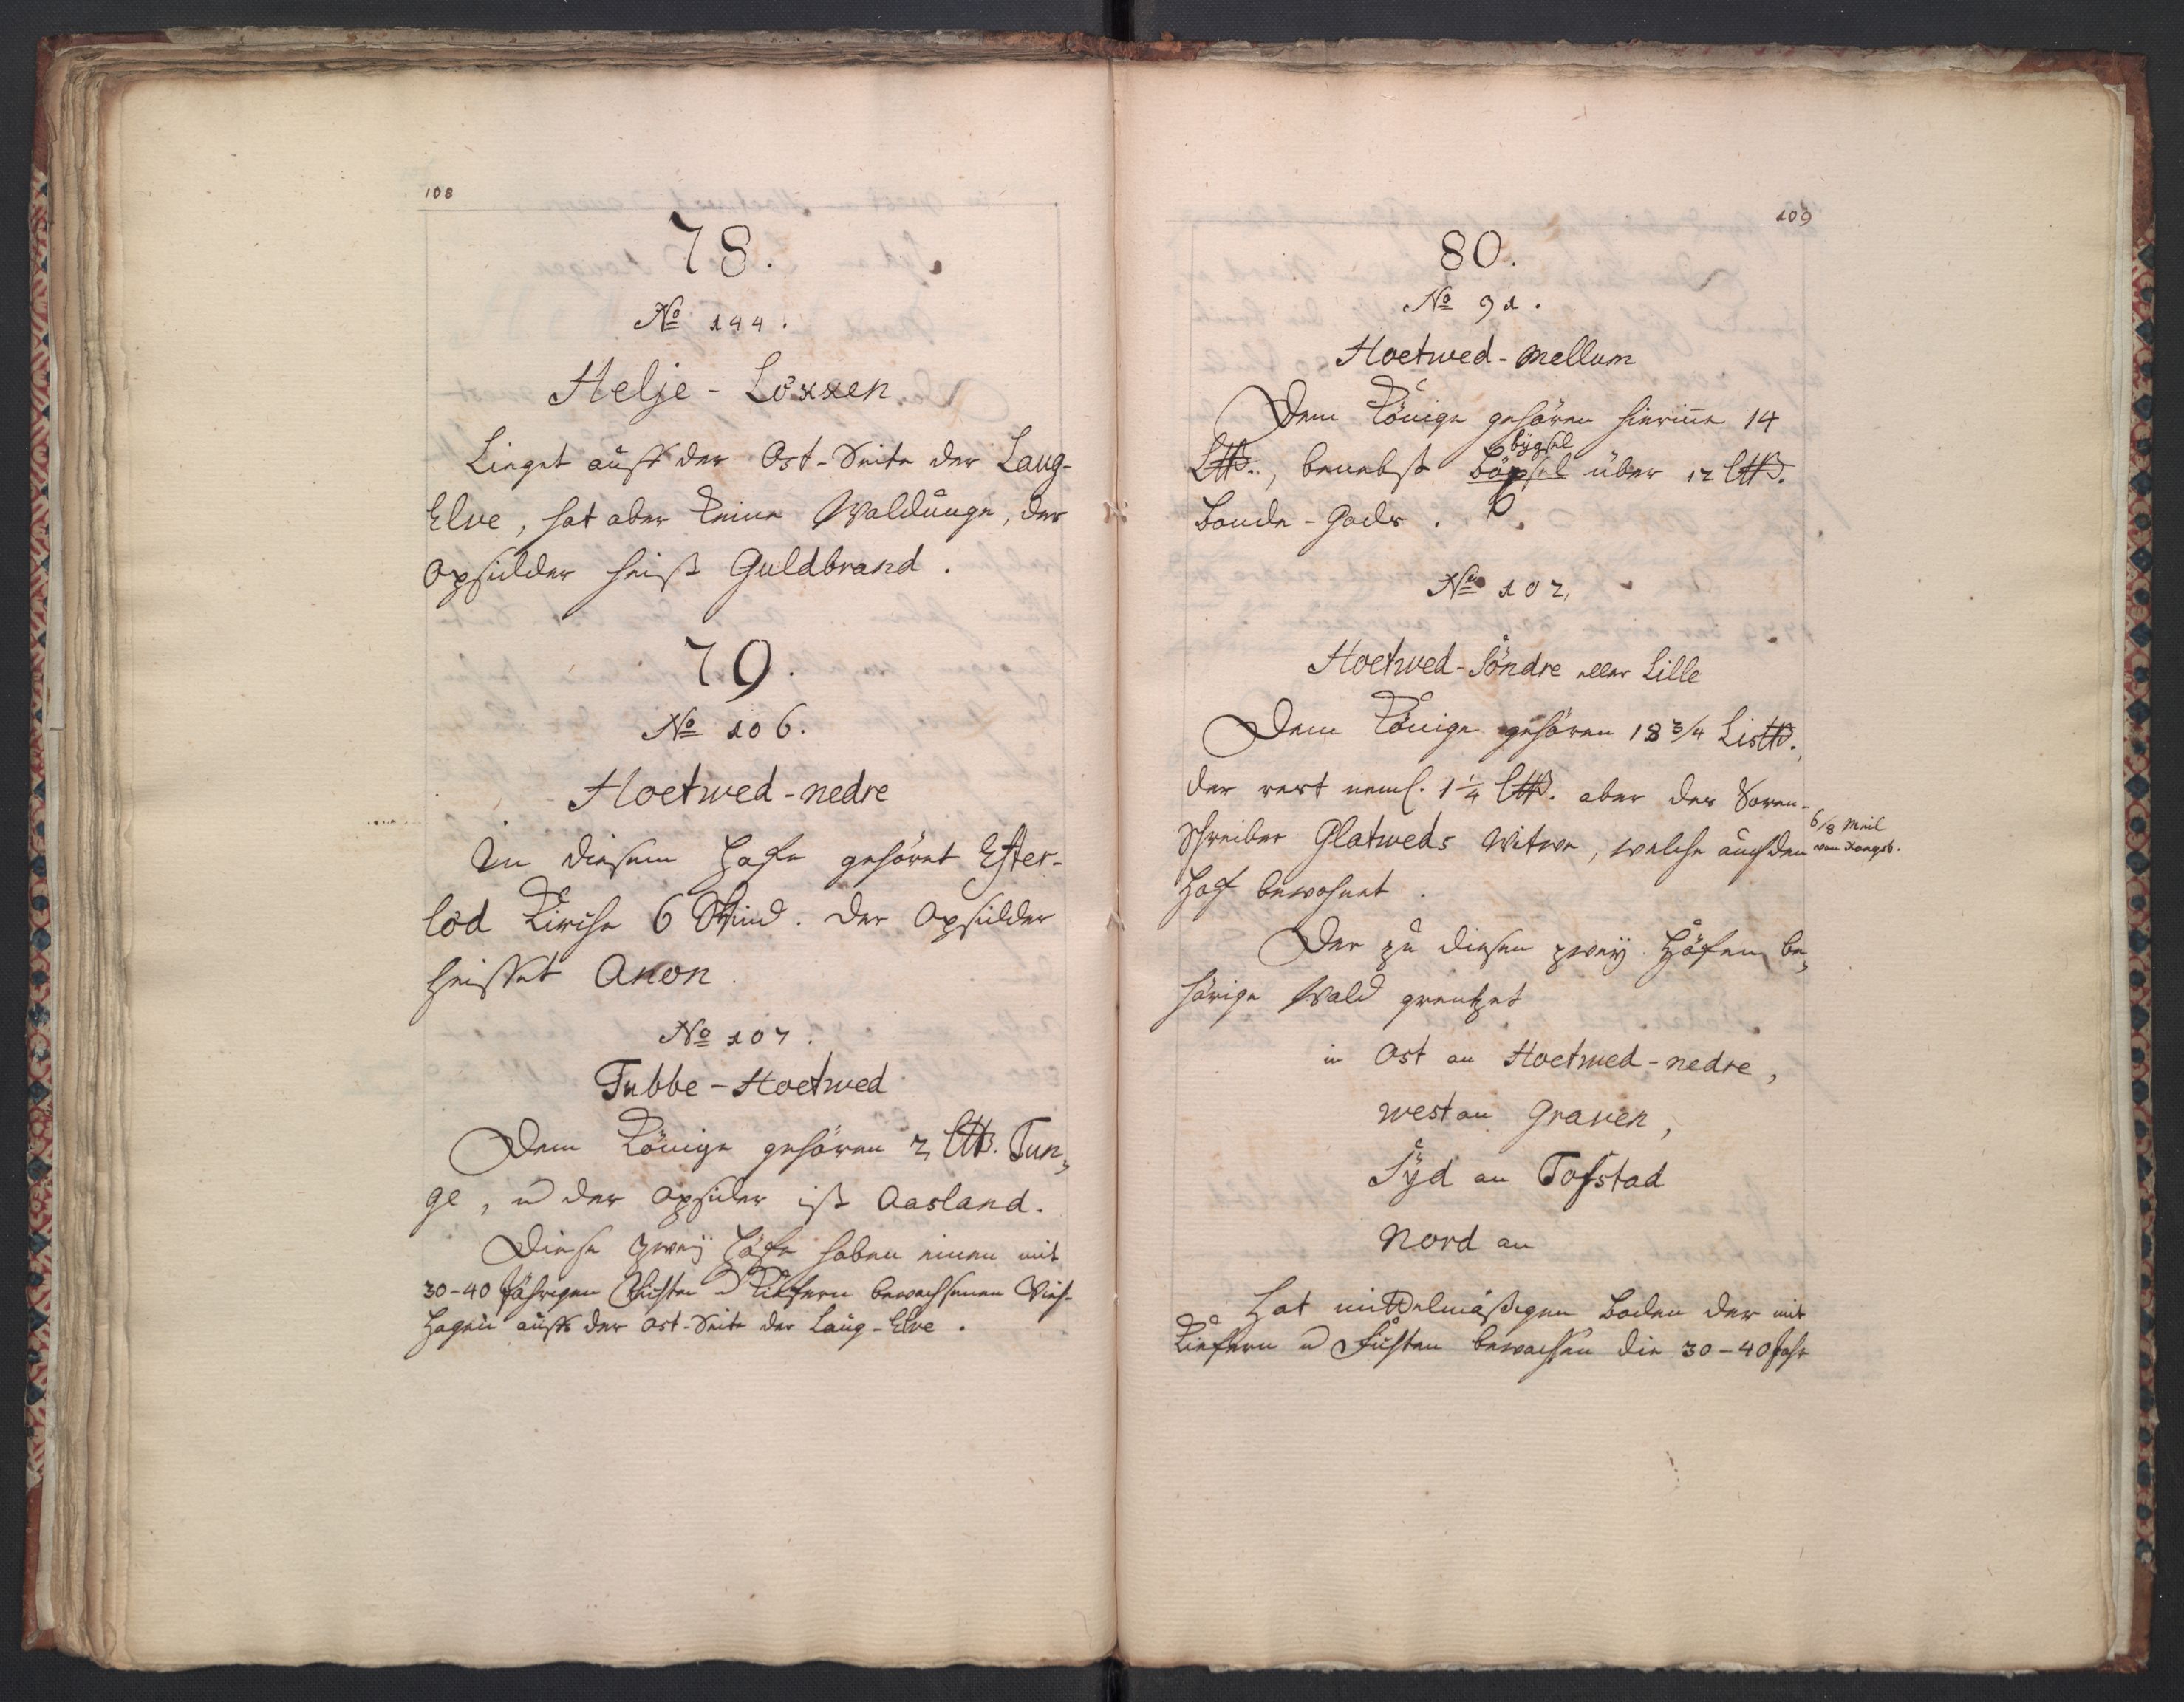 108
78.
No 144.
Helje - Loxxen
Lieget auff der Ost-Seite der Laug-
Elve, hat aber keine Waldunge, der
Opsidder heist Guldbrand.
79.
No 106.
Hoetwed - nedre
In diesem Hofe gehöret Efter-
löd Kirche 6 Skind. Der Opsidder
heisset Anon.
No 107.
Tubbe - Hoetwed
Dem Könige gehören 2 L℔. Tun-
ge, u der Opsider ist Aasland.
Diese zweÿ Höfe haben einen mit
30-40 Jährigen Fichten u Kiefern bewachsenen Vieh-
Hagen auff der Ost-Seite der Laug-Elve.
109
80.
No 91.
Hoetwed - mellum
Dem Könige gehören hierinne 14
L℔., benebst böxsel über 12 L℔.
bygsel
Bonde-Gods.
No 102.
Hoetwed-Söndre eller Lille
Dem Könige gehören 18 3/4 Lis℔.
der rest neml. 1 1/4 L℔. aber des Soren-
Schreiber Glatweds Witwe, welche auch den
6/8 Meil
von Kongsb.
Hof bewohnet.
Der zu diesen zweÿ Höfen be-
hörige Wald grentzet
in Ost an Hoetwed-nedre,
West an Graven,
Syd an Tofstad
Nord an
Hat mittelmäßigen Boden der mit
Kiefern u Fichten bewachsen die 30-40 Jahr